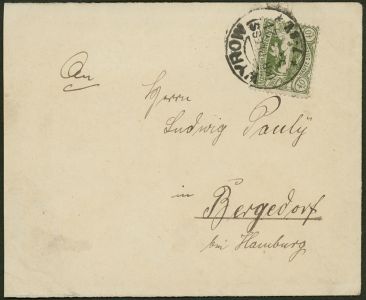 An
Herrn
Ludwig Pauly
in
Bergedorf
bei Hamburg